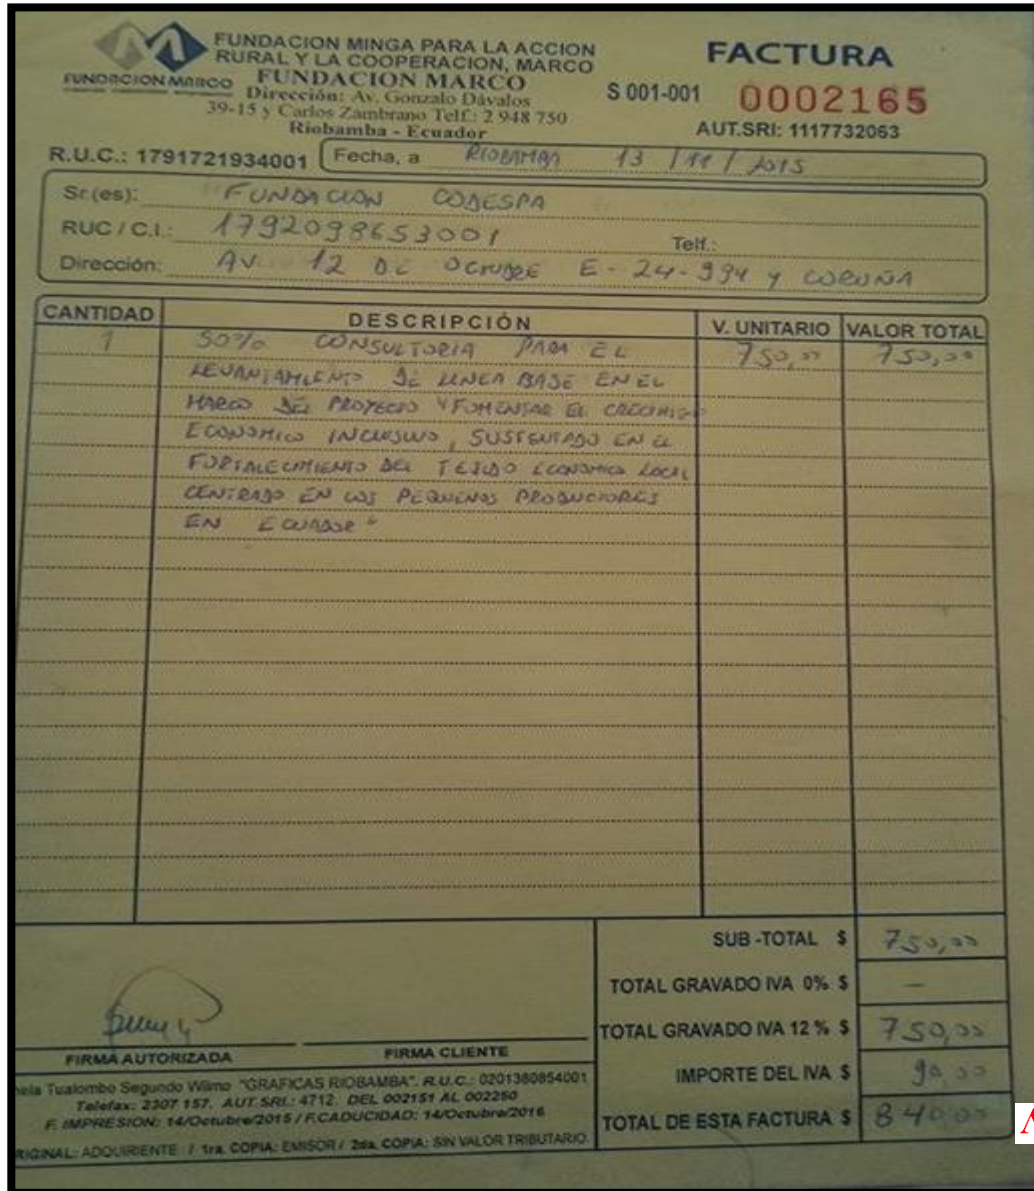 FUNDACION MINGA PARA LA ACCION
RURAL Y LA COOPERACION, MARCO
FUNDACION MARCO
FUNDACION MARCO
Dirección: Av. Gonzalo Dávalos
39-15 y Carlos Zambrano Telf.: 2 948 750
Riobamba - Ecuador
FACTURA
S 001-001 0002165
AUT.SRI: 1117732063
R.U.C.: 1791721934001 Fecha, a RIOBAMBA 13 / 11 / 2015
Sr.(es): FUNDACION CODESPA
RUC / C.I.: 1792098653001 Telf.:
Dirección: AV. 12 DE OCTUBRE E-24-994 y CORUÑA
CANTIDAD DESCRIPCIÓN V. UNITARIO VALOR TOTAL
1 50% CONSULTORIA PARA EL 750,00 750,00
LEVANTAMIENTO DE LINEA BASE EN EL
MARCO DEL PROYECTO "FOMENTAR EL
ECONOMICO INCLUSIVO, SUSTENTADO EN EL
FORTALECIMIENTO DEL TEJIDO ECONOMICO LOCAL
CENTRADO EN LOS PEQUEÑOS PRODUCTORES
EN ECUADOR"
SUB -TOTAL $ 750,00
TOTAL GRAVADO IVA 0% $ —
TOTAL GRAVADO IVA 12 % $ 750,00
IMPORTE DEL IVA $ 90,00
TOTAL DE ESTA FACTURA $ 840,00
FIRMA AUTORIZADA FIRMA CLIENTE
Tualombo Segundo Wilmo "GRAFICAS RIOBAMBA". R.U.C.: 0201380854001
Telefax: 2307 157. AUT. SRI.: 4712. DEL 002151 AL 002250
F. IMPRESION: 14/Octubre/2015 / F.CADUCIDAD: 14/Octubre/2016
RIGINAL: ADQUIRIENTE / 1ra. COPIA: EMISOR / 2da. COPIA: SIN VALOR TRIBUTARIO